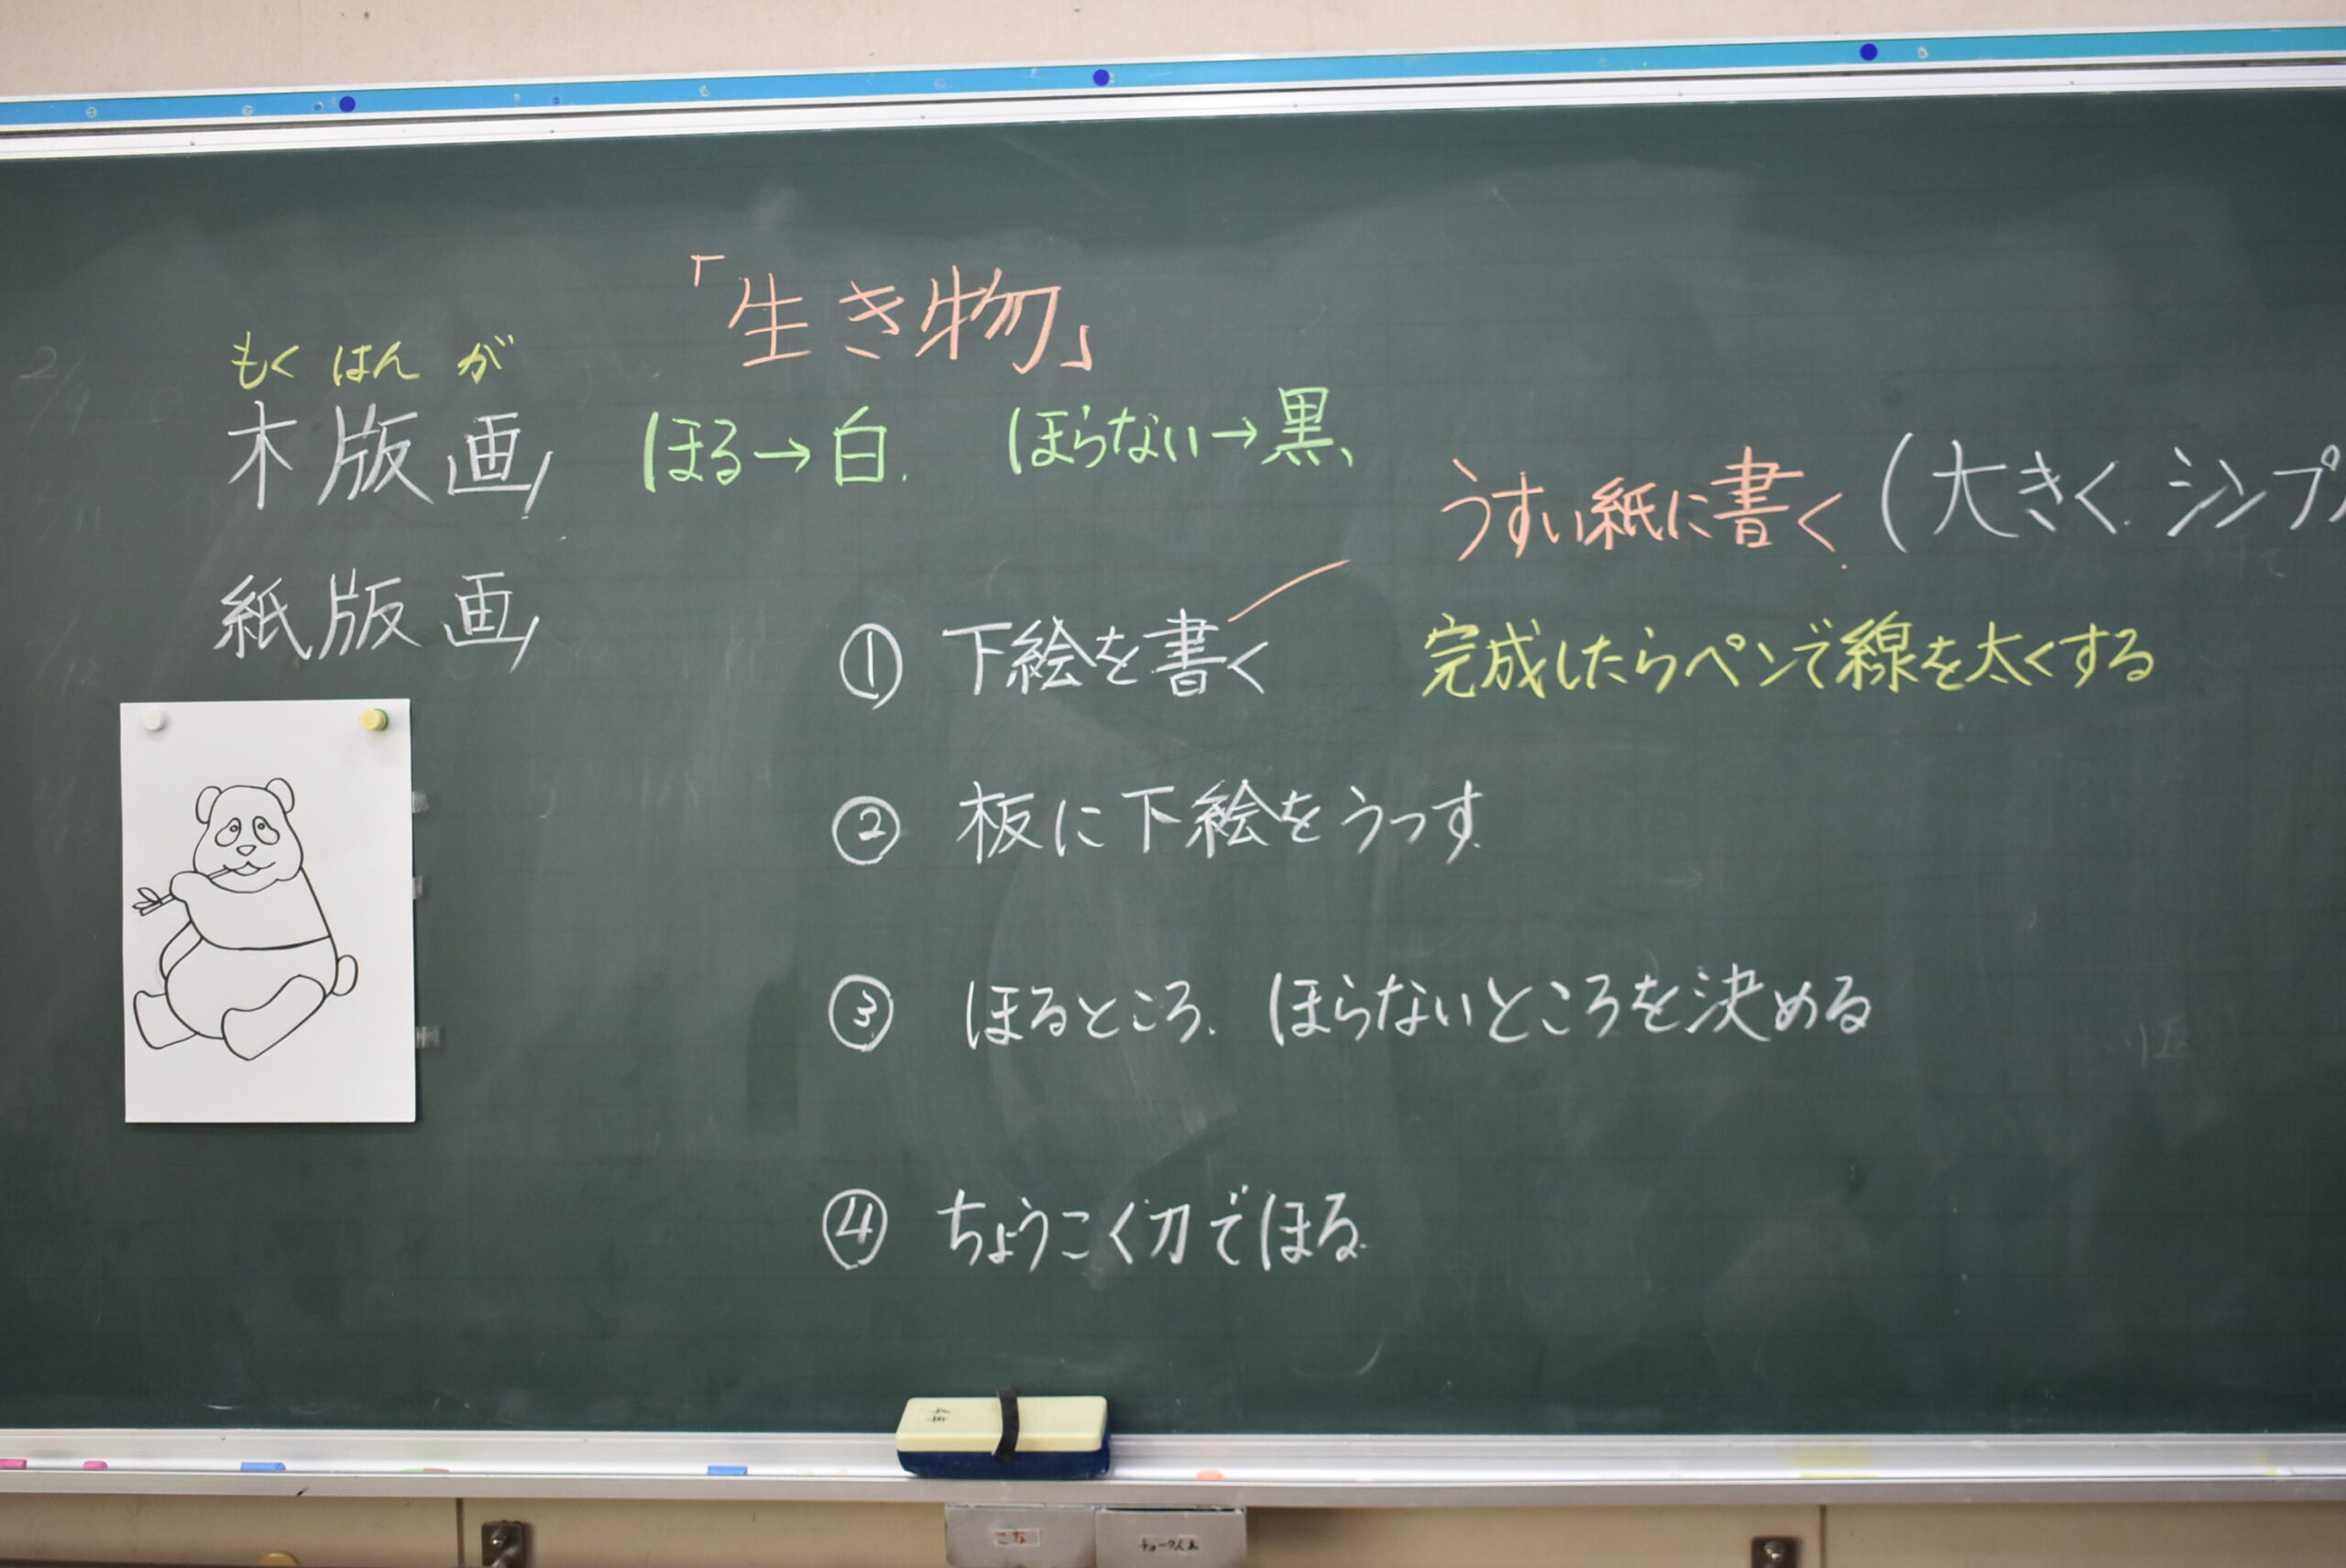 「生き物」
もくはんが
木版画
ほる→白. ほらない→黒、
うすい紙に書く (大きく. シンプ
紙版画
① 下絵を書く
完成したらペンで線を太くする
② 板に下絵をうつす
③ ほるところ. ほらないところを決める
④ ちょうこく刀でほる
こな